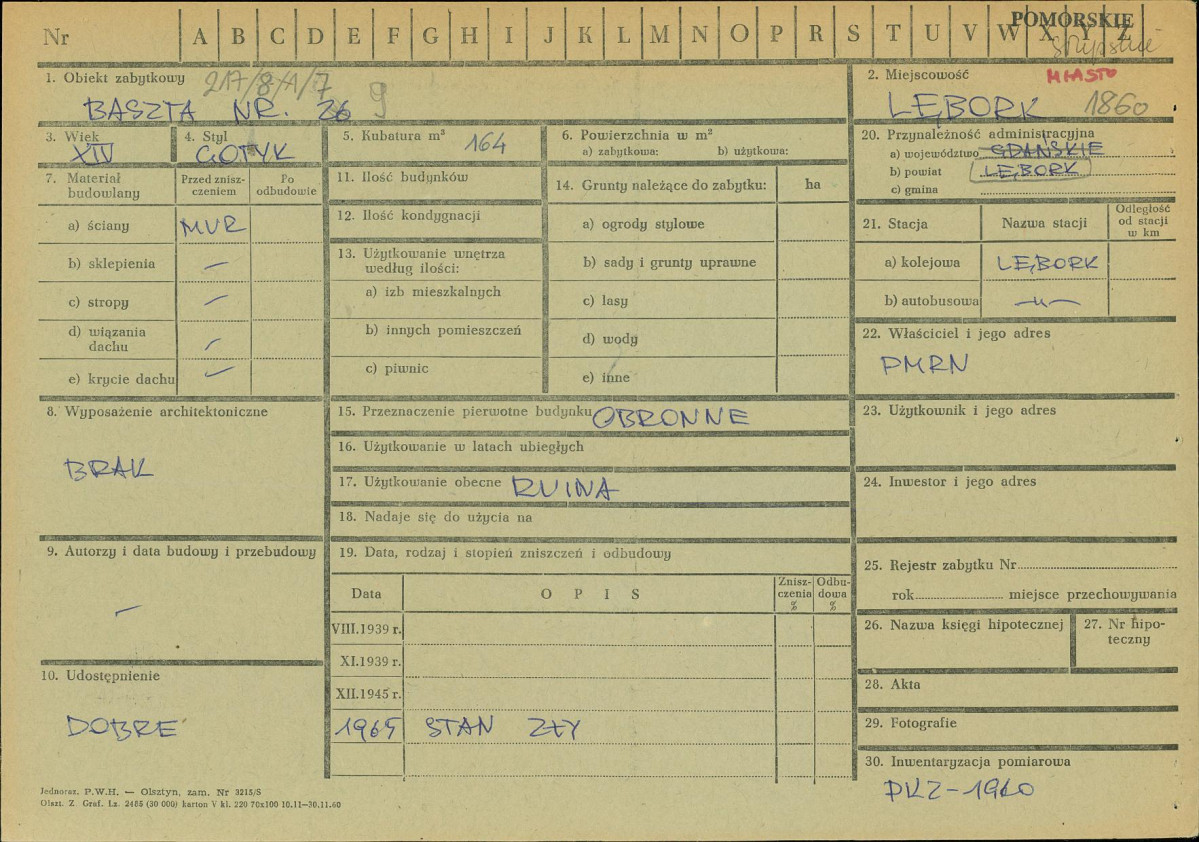 Nr A B C D E F G H I J K L M N O P R S T U V W X Y Z
POMORSKIE
1. Obiekt zabytkowy 217/8
BASZTA NR. 26 9
2. Miejscowość MIASTO
LĘBORK 1860
3. Wiek
XIV
4. Styl
GOTYK
5. Kubatura m³ 164
6. Powierzchnia w m²
a) zabytkowa: b) użytkowa:
7. Materiał budowlany
Przed zniszczeniem
Po odbudowie
a) ściany MUR
b) sklepienia —
c) stropy —
d) wiązania dachu —
e) krycie dachu —
11. Ilość budynków
12. Ilość kondygnacji
13. Użytkowanie wnętrza
według ilości:
a) izb mieszkalnych
b) innych pomieszczeń
c) piwnic
14. Grunty należące do zabytku: ha
a) ogrody stylowe
b) sady i grunty uprawne
c) lasy
d) wody
e) inne
20. Przynależność administracyjna
a) województwo GDAŃSKIE
b) powiat LĘBORK
c) gmina
21. Stacja Nazwa stacji
Odległość
od stacji
w km
a) kolejowa LĘBORK
b) autobusowa —u—
22. Właściciel i jego adres
PMRN
8. Wyposażenie architektoniczne
BRAK
9. Autorzy i data budowy i przebudowy
—
10. Udostępnienie
DOBRE
15. Przeznaczenie pierwotne budynku OBRONNE
16. Użytkowanie w latach ubiegłych
17. Użytkowanie obecne RUINA
18. Nadaje się do użycia na
19. Data, rodzaj i stopień zniszczeń i odbudowy
Data O P I S Zniszczenia % Odbudowa %
VIII.1939 r.
XI.1939 r.
XII.1945 r.
1965 STAN ZŁY
23. Użytkownik i jego adres
24. Inwestor i jego adres
25. Rejestr zabytku Nr
rok miejsce przechowywania
26. Nazwa księgi hipotecznej
27. Nr hipoteczny
28. Akta
29. Fotografie
30. Inwentaryzacja pomiarowa
PKZ-1960
Jednoraz. P.W.H. — Olsztyn, zam. Nr 3215/S
Olszt. Z. Graf. Lz. 2485 (30 000) karton V kl. 220 70x100 10.11—30.11.60